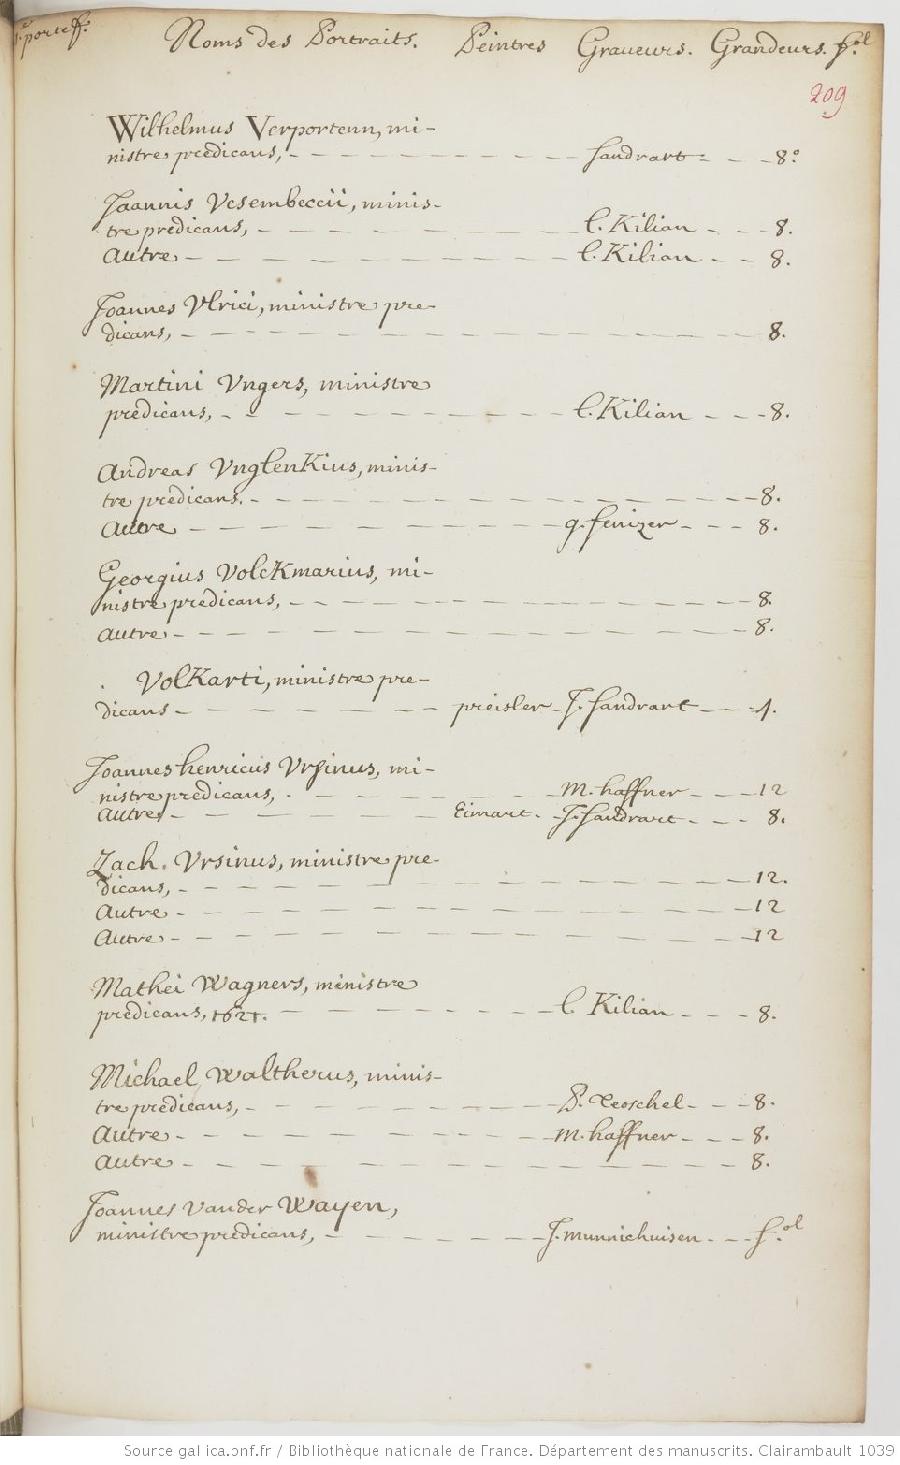 Noms des Portraits. Peintres Graveurs. Grandeurs. f.ol
209
Wilhelmus Verportenn, mi-
nistre predicans, - - - sandrart - - - 8.o
Joannis Vesembeccii, minis-
tre predicans, - - - l. Kilian - - - 8.
Autre - - - l. Kilian - - - 8.
Joannes Vlrici, ministre pre-
dicans, - - - 8.
Martini Vngers, ministre
predicans, - - - l. Kilian - - - 8.
Andreas VnglenKius, minis-
tre predicans. - - - 8.
Autre - - - g. fenizer - - - 8.
Georgius VolcKmarius, mi-
nistre predicans, - - - 8.
Autre - - - 8.
VolKarti, ministre pre-
dicans - - - preisler - J. Sandrart - - - 4.
Joannes henricus Vrsinus, mi-
nistre predicans, - - - M. haffner - - - 12
Autre - - - Eimart. - J. Sandrart - - - 8.
Zach. Vrsinus, ministre pre-
dicans, - - - 12.
Autre - - - 12
Autre - - - 12
Mathei Wagners, ministre
predicans, 1621. - - - l. Kilian - - - 8.
Michael Waltherus, minis-
tre predicans, - - - 8.
Autre - - - M. haffner - - - 8.
Autre - - - 8.
Joannes Vander Wayen,
ministre predicans, - - - J. munnichuisen - - - f.ol
Source gallica.bnf.fr / Bibliothèque nationale de France. Département des manuscrits. Clairambault 1039